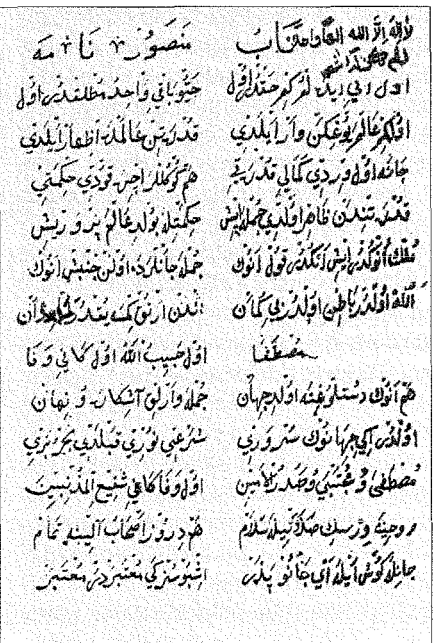 لا اله الا الله
كتاب منصور نامه
حي و باقي واحد مطلقدر اول
اولكم عالم يوغيكن وار ايلدي قدرتن عالمده اظهار ايلدي
جانه اول ويردي كمالي قدرتي هم كوكللر اچره قودي حكمتي
قدرتندن ظاهر اولدي جمله ايش حكمتله بولدي عالم پرورش
ملك انوكدر ايش انكدر قول انوك جمله جانلرده اولن جنبش انوك
الله اولدر باطن اولدر بي كمان اندن ارتق كمسه يقدر
مصطفا اول حبيب الله اول كاني وفا
هم انوك دستلوغينه اولدي جهان جمله وارلق آشكار و نهان
اولدر ايكي جهانوك سروري شرعي نوري قبلدي بحر بري
مصطفى و مجتبى و صدر الامين اول وفا كاني شفيع المذنبين
روحنه ويرسك صلاتيله سلام هم دروز اصحاب آلينه تمام
جانله كوش ايله اي جانو پدر اشبو سزكي معتبردر معتبر